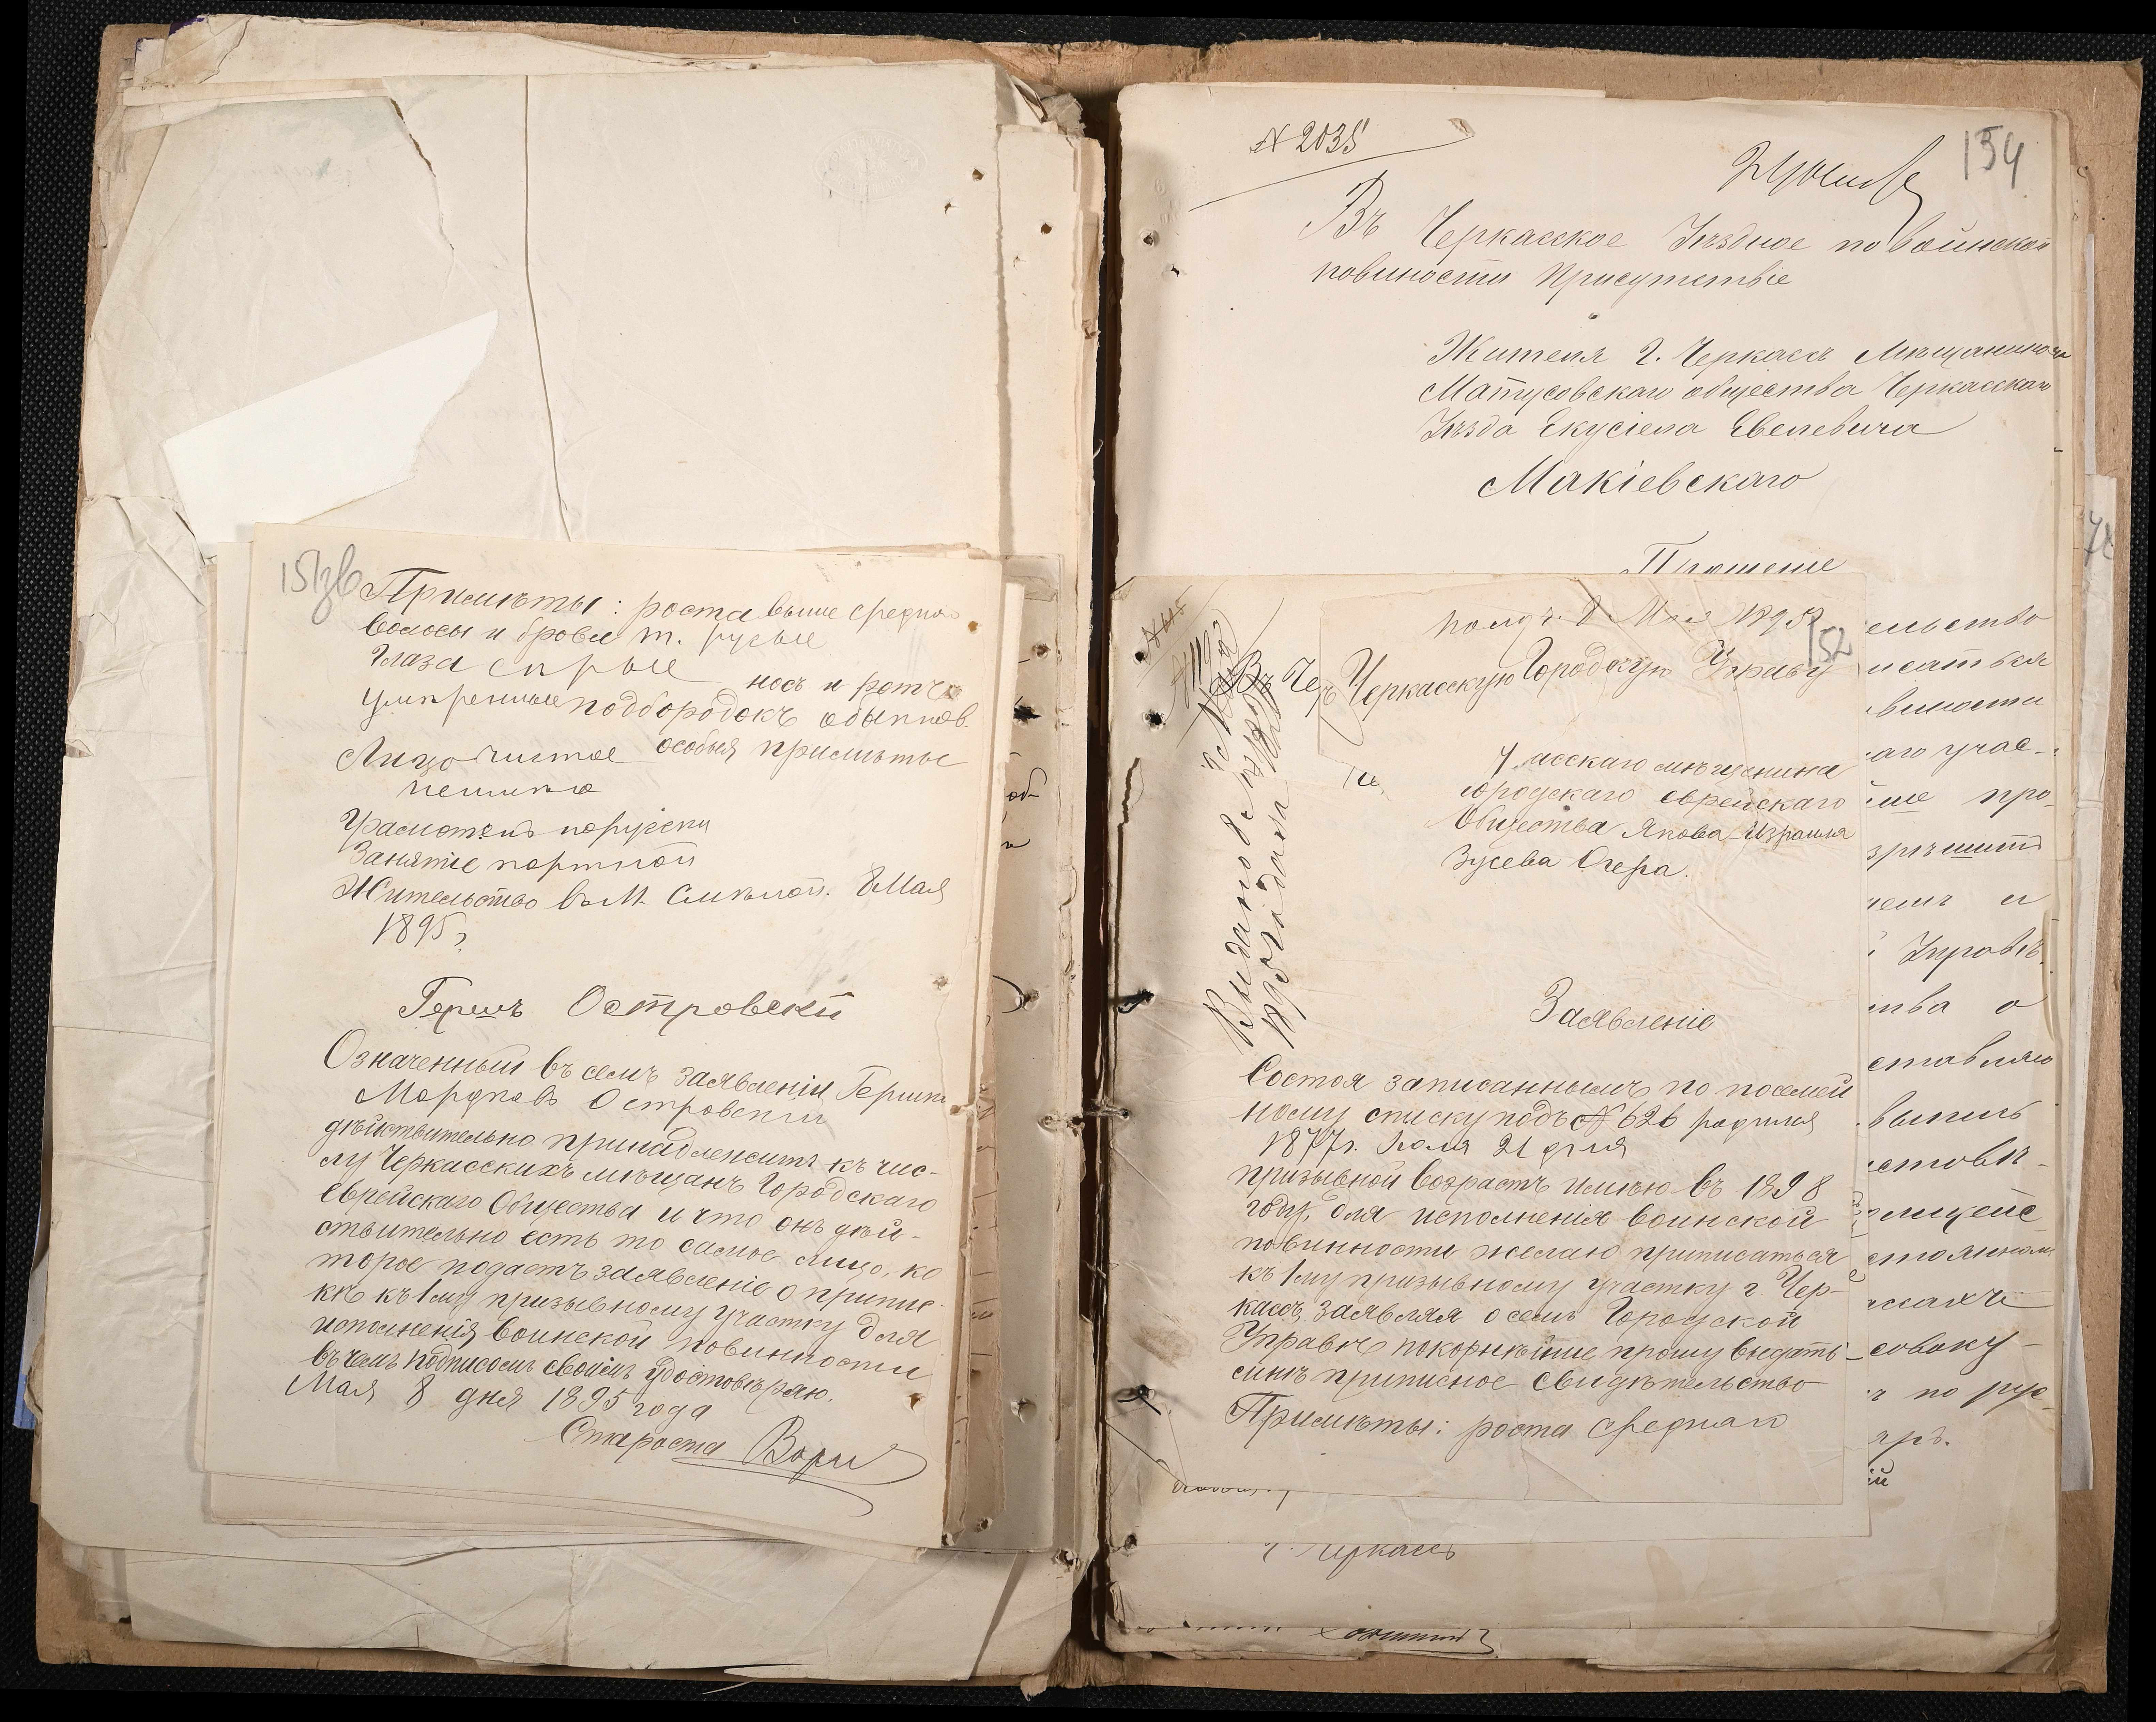 151об
Примѣты: роста выше средня
волосы и брови т. русые
Глаза сѣрые носъ и ротъ
умѣренные подбородокъ обыкнов.
Лицо чистое особыя примѣты
неимѣю
Грамотенъ порусски
Занятіе портной
Жительство въ М. Смѣлой. 8 Мая
1895 г
Гершъ Островскій
Означенный въ семъ заявленіи Гершъ
Мордковъ Островскій
дѣйствительно принадлежитъ къ чис-
лу Черкасскихъ мѣщанъ Городскаго
Еврейскаго Общества и что онъ дѣй-
ствительно есть то самое лицо, ко
торое подаетъ заявленіе о припис-
кѣ къ 1му призывному участку для
исполненія воинской повинности
въ чемъ подписомъ своимъ удостовѣряю.
Мая 8 дня 1895 года
Староста
№ 2035
154
Въ Черкасское Уѣздное по воинской
повиности Присутствіе
Жителя г. Черкассъ Мѣщанина
Матусовскаго общества Черкасскаго
Уѣзда Екусіела Евелевича
Макіевскаго
Прошеніе
получ. 8 Мая 1895
152
Въ Че
Черкасскую Городскую Управу
асскаго мѣщанина
городскаго еврейскаго
Общества Якова-Израиля
Зусева Очера.
Заявленіе
Состоя записаннымъ по посемей
ному списку подъ № 626 родился
1877 г. Іюля 21 дня
призывной возрастъ имѣю въ 1898
году, для исполненія воинской
повинности желаю приписаться
къ 1му призывному участку г. Чер-
кассъ, заявляя о семъ Городской
Управѣ покорнѣйше прошу выдать
мнѣ приписное свидѣтельство
Примѣты: роста средняго
ельство
исаться
виности
аго учас-
ше про-
зрѣшить
чемъ и
Управѣ
тва о
ставляю
выпись
стовѣ-
олицейс
стоянном
ассахъ
совоку-
ъ по рус
ярь.
ій
г. Черкассъ